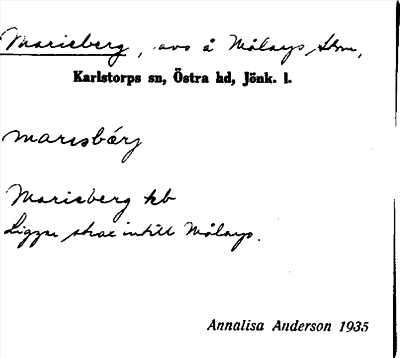 Marieberg, avs å Målarps skn,
Karlstorps sn, Östra hd, Jönk. l.
marısbærj
Marieberg kb
Ligger strax intill Målarp.
Annalisa Anderson 1935